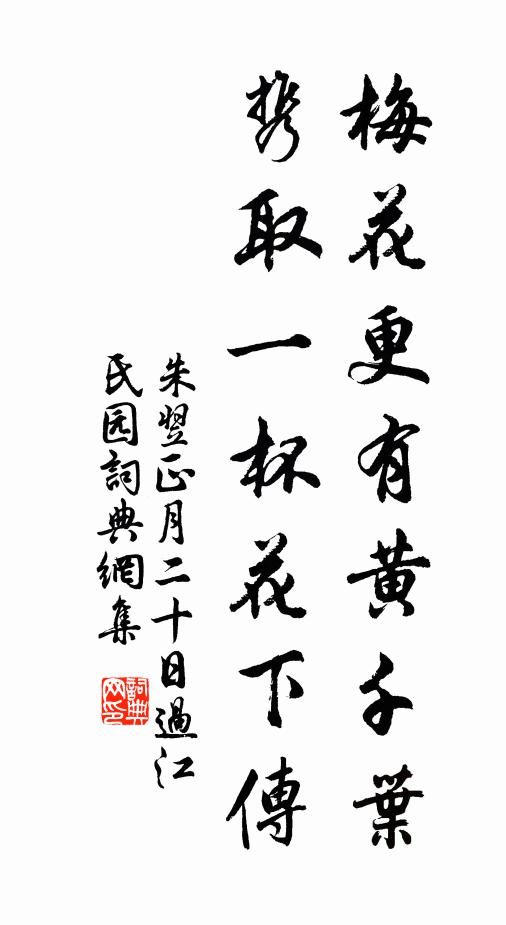 梅花更有黄千葉
携取一杯花下傳
朱翌正月二十日過江
民国詞典網集
詞典网印